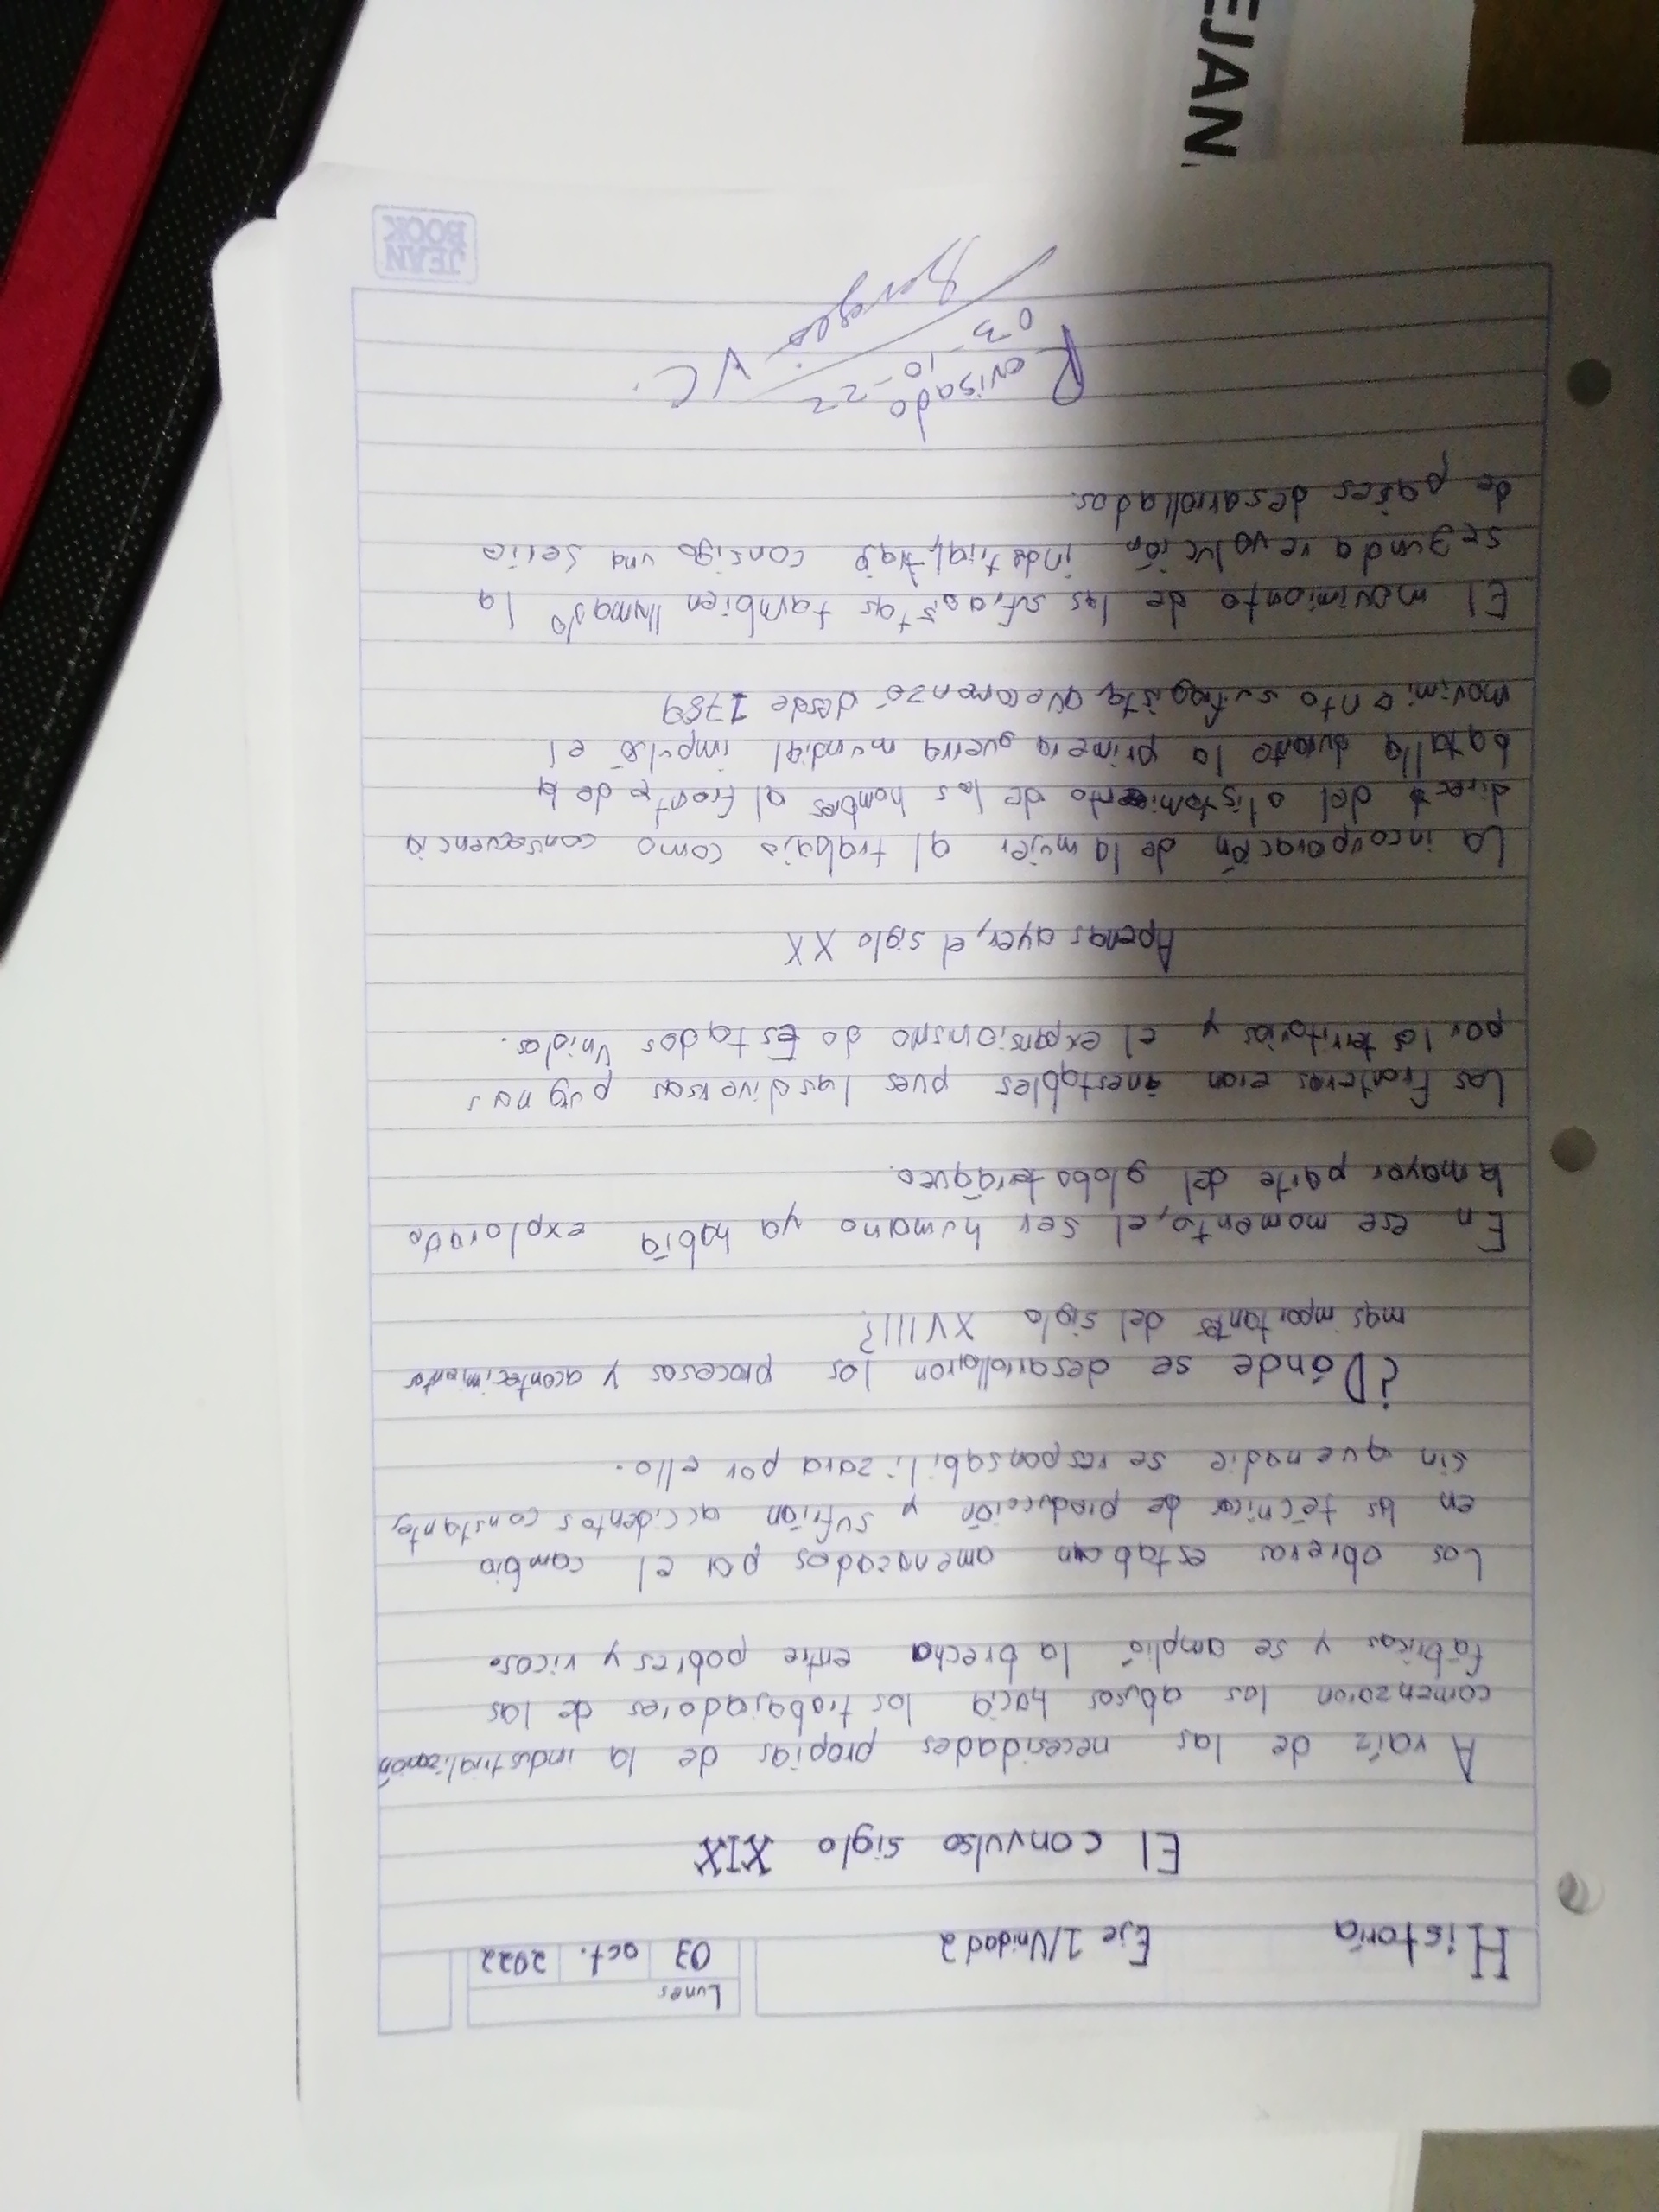 Historia Eje 1/Unidad 2
Lunes
03 oct. 2022
El convulso siglo XIX
A raíz de las necesidades propias de la industrialización
comenzaron los abusos hacia los trabajadores de las
fábricas y se amplió la brecha entre pobres y ricos.
Los obreros estaban amenazados por el cambio
en las técnicas de producción y sufrían accidentes constantes,
sin que nadie se responsabilizara por ello.
¿Dónde se desarrollaron los procesos y acontecimientos
mas importantes del siglo XVIIII?
En ese momento, el ser humano ya había explorado
la mayor parte del globo terráqueo.
Las fronteras eran inestables pues las diversas pugnas
por los territorios y el expansionismo de Estados Unidos.
Apenas ayer, el siglo XX
La incorporación de la mujer al trabajo como consecuencia
direct del alistamiento de los hombres al frente de la
batalla durante la primera guerra mundial impulsó el
movimiento sufragista, que comenzó desde 1789
El movimiento de las sufragistas tambien llamado la
segunda revolución industrial, trajo consigo una serie
de países desarrollados.
Revisado
03-10-22
V C.
JEAN
BOOK
EJAN